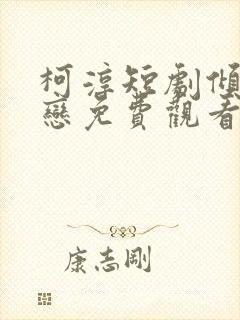 柯淳短劇傾
戀免費觀看
康志剛